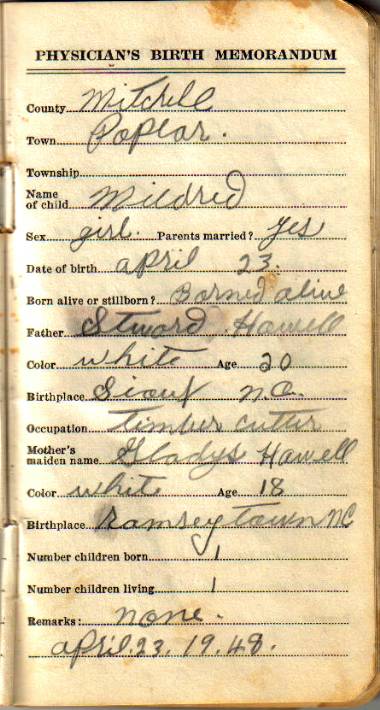 PHYSICIAN'S BIRTH MEMORANDUM
County Mitchell
Town Poplar.
Township
Name of child Mildred
Sex girl. Parents married? yes
Date of birth april 23.
Born alive or stillborn? Borned alive
Father Stward Howell
Color white Age 20
Birthplace Sioux N.C.
Occupation timber cutter
Mother's maiden name Gladys Howell
Color white Age 18
Birthplace Ramseytown NC
Number children born 1
Number children living 1
Remarks: none.
april. 23. 19.48.